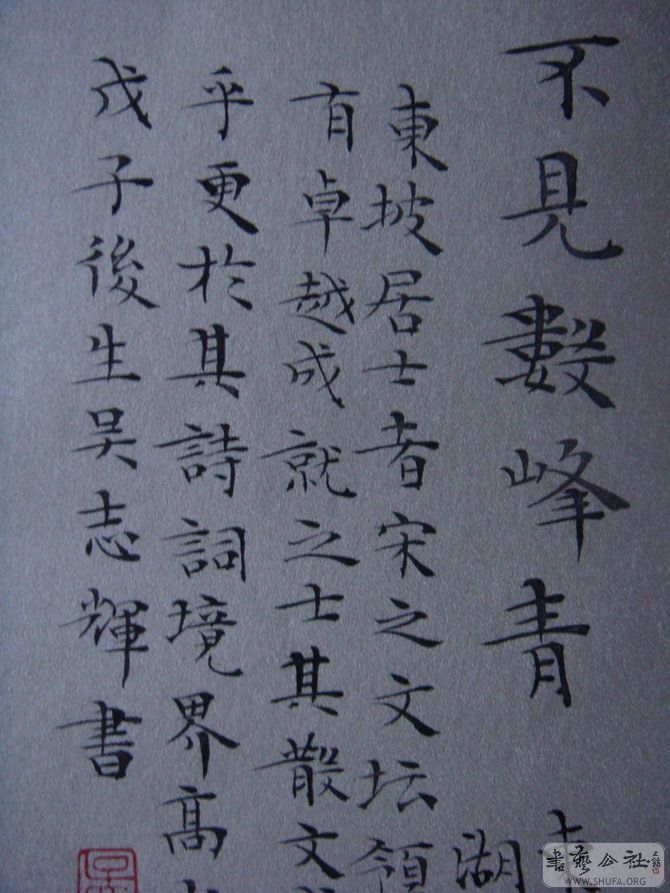 不見數峰青
湖
東坡居士者宋之文坛領
有卓越成就之士其散文
乎更於其詩詞境界高
戊子後生吴志輝書
書藝公社
WWW.SHUFA.ORG